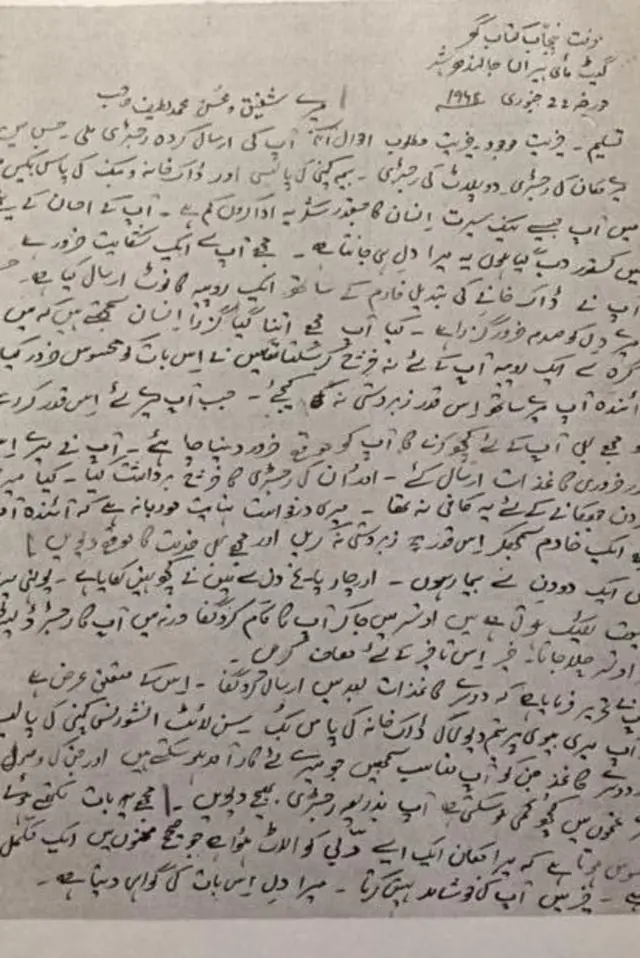 دفتر پنجاب کتاب گھر
گیٹ مائی ہیراں جالندھر شہر
مورخہ 22 جنوری
میرے شفیق و محسن محمد لطیف صاحب
تسلیم ۔ خیریت موجود خیریت مطلوب احوال آنکہ آپ کی ارسال کردہ رجسٹری ملی ۔ جس میں
میرے مکان کی رجسٹری ۔ دو پلاٹ کی رجسٹری ۔ بیمہ کمپنی کی پالیسی اور ڈاک خانہ و بنک کی پاس بکیں
میں آپ جیسے نیک سیرت انسان کا جسقدر شکریہ ادا کروں کم ہے ۔ آپ کے احسان کے
میں کسقدر دب گیا ہوں یہ میرا دل ہی جانتا ہے ۔ مجھے آپ سے ایک شکایت ضرور ہے
آپ نے ڈاک خانے کی تبدیلی فارم کے ساتھ ایک روپیہ کا نوٹ ارسال کیا ہے ۔
میرے دل کو صدمہ ضرور گزرا ہے ۔ کیا آپ مجھے اتنا گیا گزرا انسان سمجھتے ہیں کہ میں
گرہ سے ایک روپیہ آپ کے لئے نہ خرچ کر سکتا تھا میں نے اس بات کو محسوس ضرور کیا
آئندہ آپ میرے ساتھ اس قدر زبردستی نہ کیجئے ۔ جب آپ میرے لئے اس قدر کر رہے
مجھے بھی آپ کے لئے کچھ کرنے کا آپ کو موقع ضرور دینا چاہئے ۔ آپ نے میرے
ضروری کاغذات ارسال کئے ۔ اور ان کی رجسٹری کا خرچ برداشت کیا ۔ کیا
جھکانے کے لئے یہ کافی نہ تھا ۔ میری درخواست نہایت مودبانہ ہے کہ آئندہ
ایک خادم سمجھ کر اس قدر زبردستی نہ کریں اور مجھے بھی خدمت کا موقع دیویں
ایک دو دن سے بیمار ہوں ۔ اور چار پانچ دن سے میں نے کچھ نہیں کھایا ہے ۔
ٹھیک ہوتی ہے میں امرتسر جا کر آپ کا کام کروں گا ورنہ میں آپ کا
امرتسر چلا جاتا ۔ خیر اس تاخیر کے لئے معاف کریں ۔
تحریر فرمایا ہے کہ دوسرے کاغذات بعد میں ارسال کروں گا ۔ اس کے متعلق عرض ہے
آپ میری بیوی پریتم دیوی کی ڈاک خانہ کی پاس بک سن لائٹ انشورنس کمپنی کی
دوسرے کاغذ جن کو آپ مناسب سمجھیں جو میرے لئے کارآمد ہو سکتے ہیں اور جن کی
غموں میں کچھ کمی ہو سکتی ہے آپ بذریعہ رجسٹری بھیج دیویں ۔ مجھے یہ بات لکھتے ہوئے
ہوتا ہے کہ میرا مکان ایک ایسے آدمی کو الاٹ ہوا ہے جو صحیح معنوں میں ایک مکمل
ہے ۔ خیر میں آپ کی خوشامد نہیں کرتا ۔ میرا دل اس بات کی گواہی دیتا ہے ۔